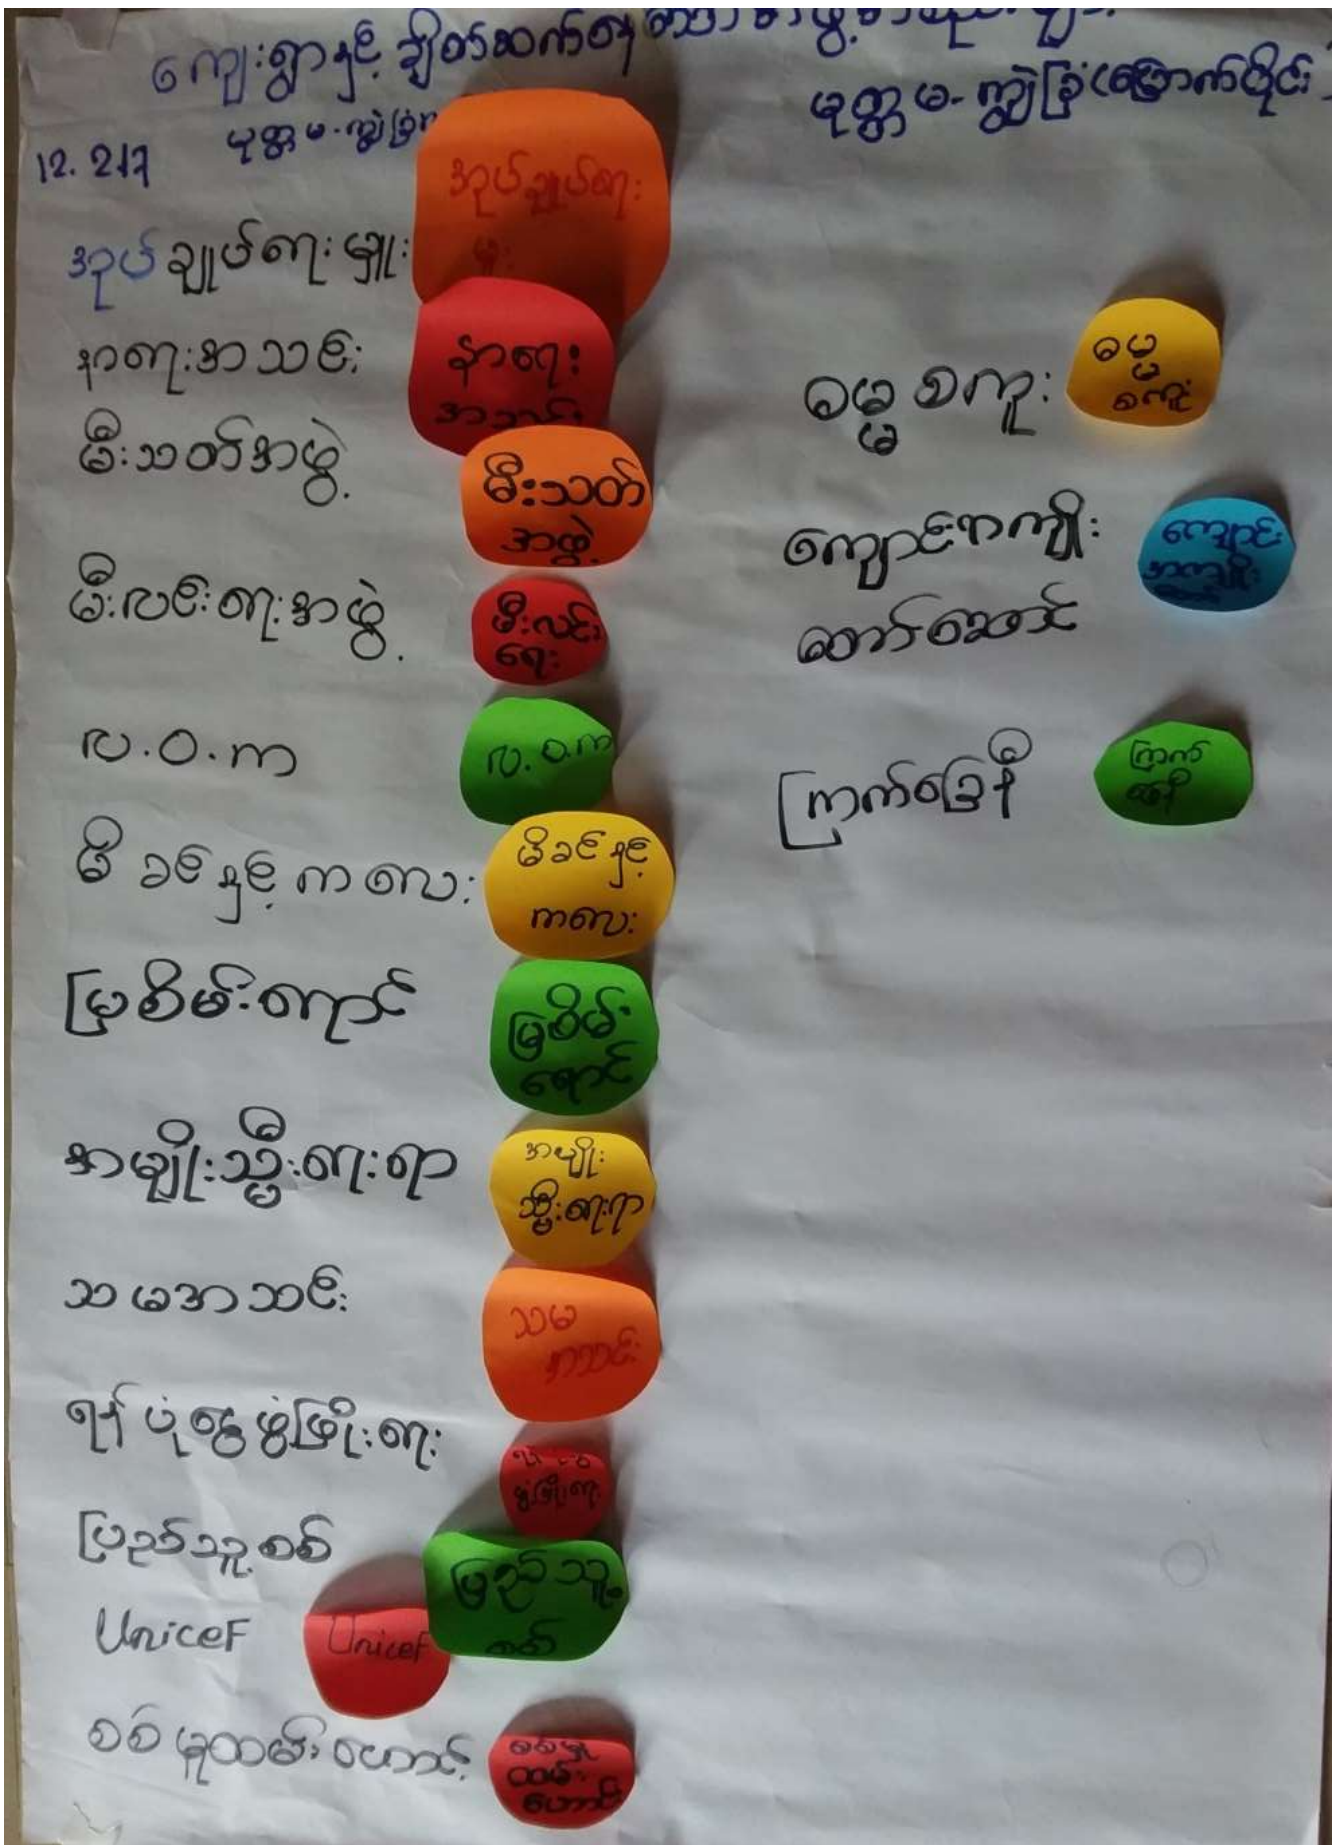 ကျေးရွာနှင့် ချိတ်ဆက်နေသော အဖွဲ့အစည်းများ
မုတ္တမ-ကျွဲခြံ(မြောက်ပိုင်း)
မုတ္တမ-ကျွဲခြံ
အုပ်ချုပ်ရေးမှူး
အုပ်ချုပ်ရေး
မှူး
နာရေးအသင်း
နာရေး
အသင်း
မီးသတ်အဖွဲ့
မီးသတ်
အဖွဲ့
မီးလင်းရေးအဖွဲ့
မီးလင်း
ရေး
လ.ဝ.က
လ.ဝ.က
မိခင်နှင့် ကလေး
မိခင်နှင့်
ကလေး
မြစိမ်းရောင်
မြစိမ်း
ရောင်
အမျိုးသ္မီးရေးရာ
အမျိုး
သ္မီးရေးရာ
သမအသင်း
သမ
အသင်း
ရန်ပုံငွေဖွံ့ဖြိုးရေး
ဖွံ့ဖြိုးရေး
ပြည်သူ့စစ်
ပြည်သူ့
စစ်
Unicef
Unicef
စစ်မှုထမ်းဟောင်း
စစ်မှု
ထမ်း
ဟောင်း
ဓမ္မစကူး
ဓမ္မ
စကူး
ကျောင်းအကျိုး
တော်ဆောင်
ကျောင်း
အကျိုး
ဆောင်
ကြက်ခြေနီ
ကြက်
ခြေနီ